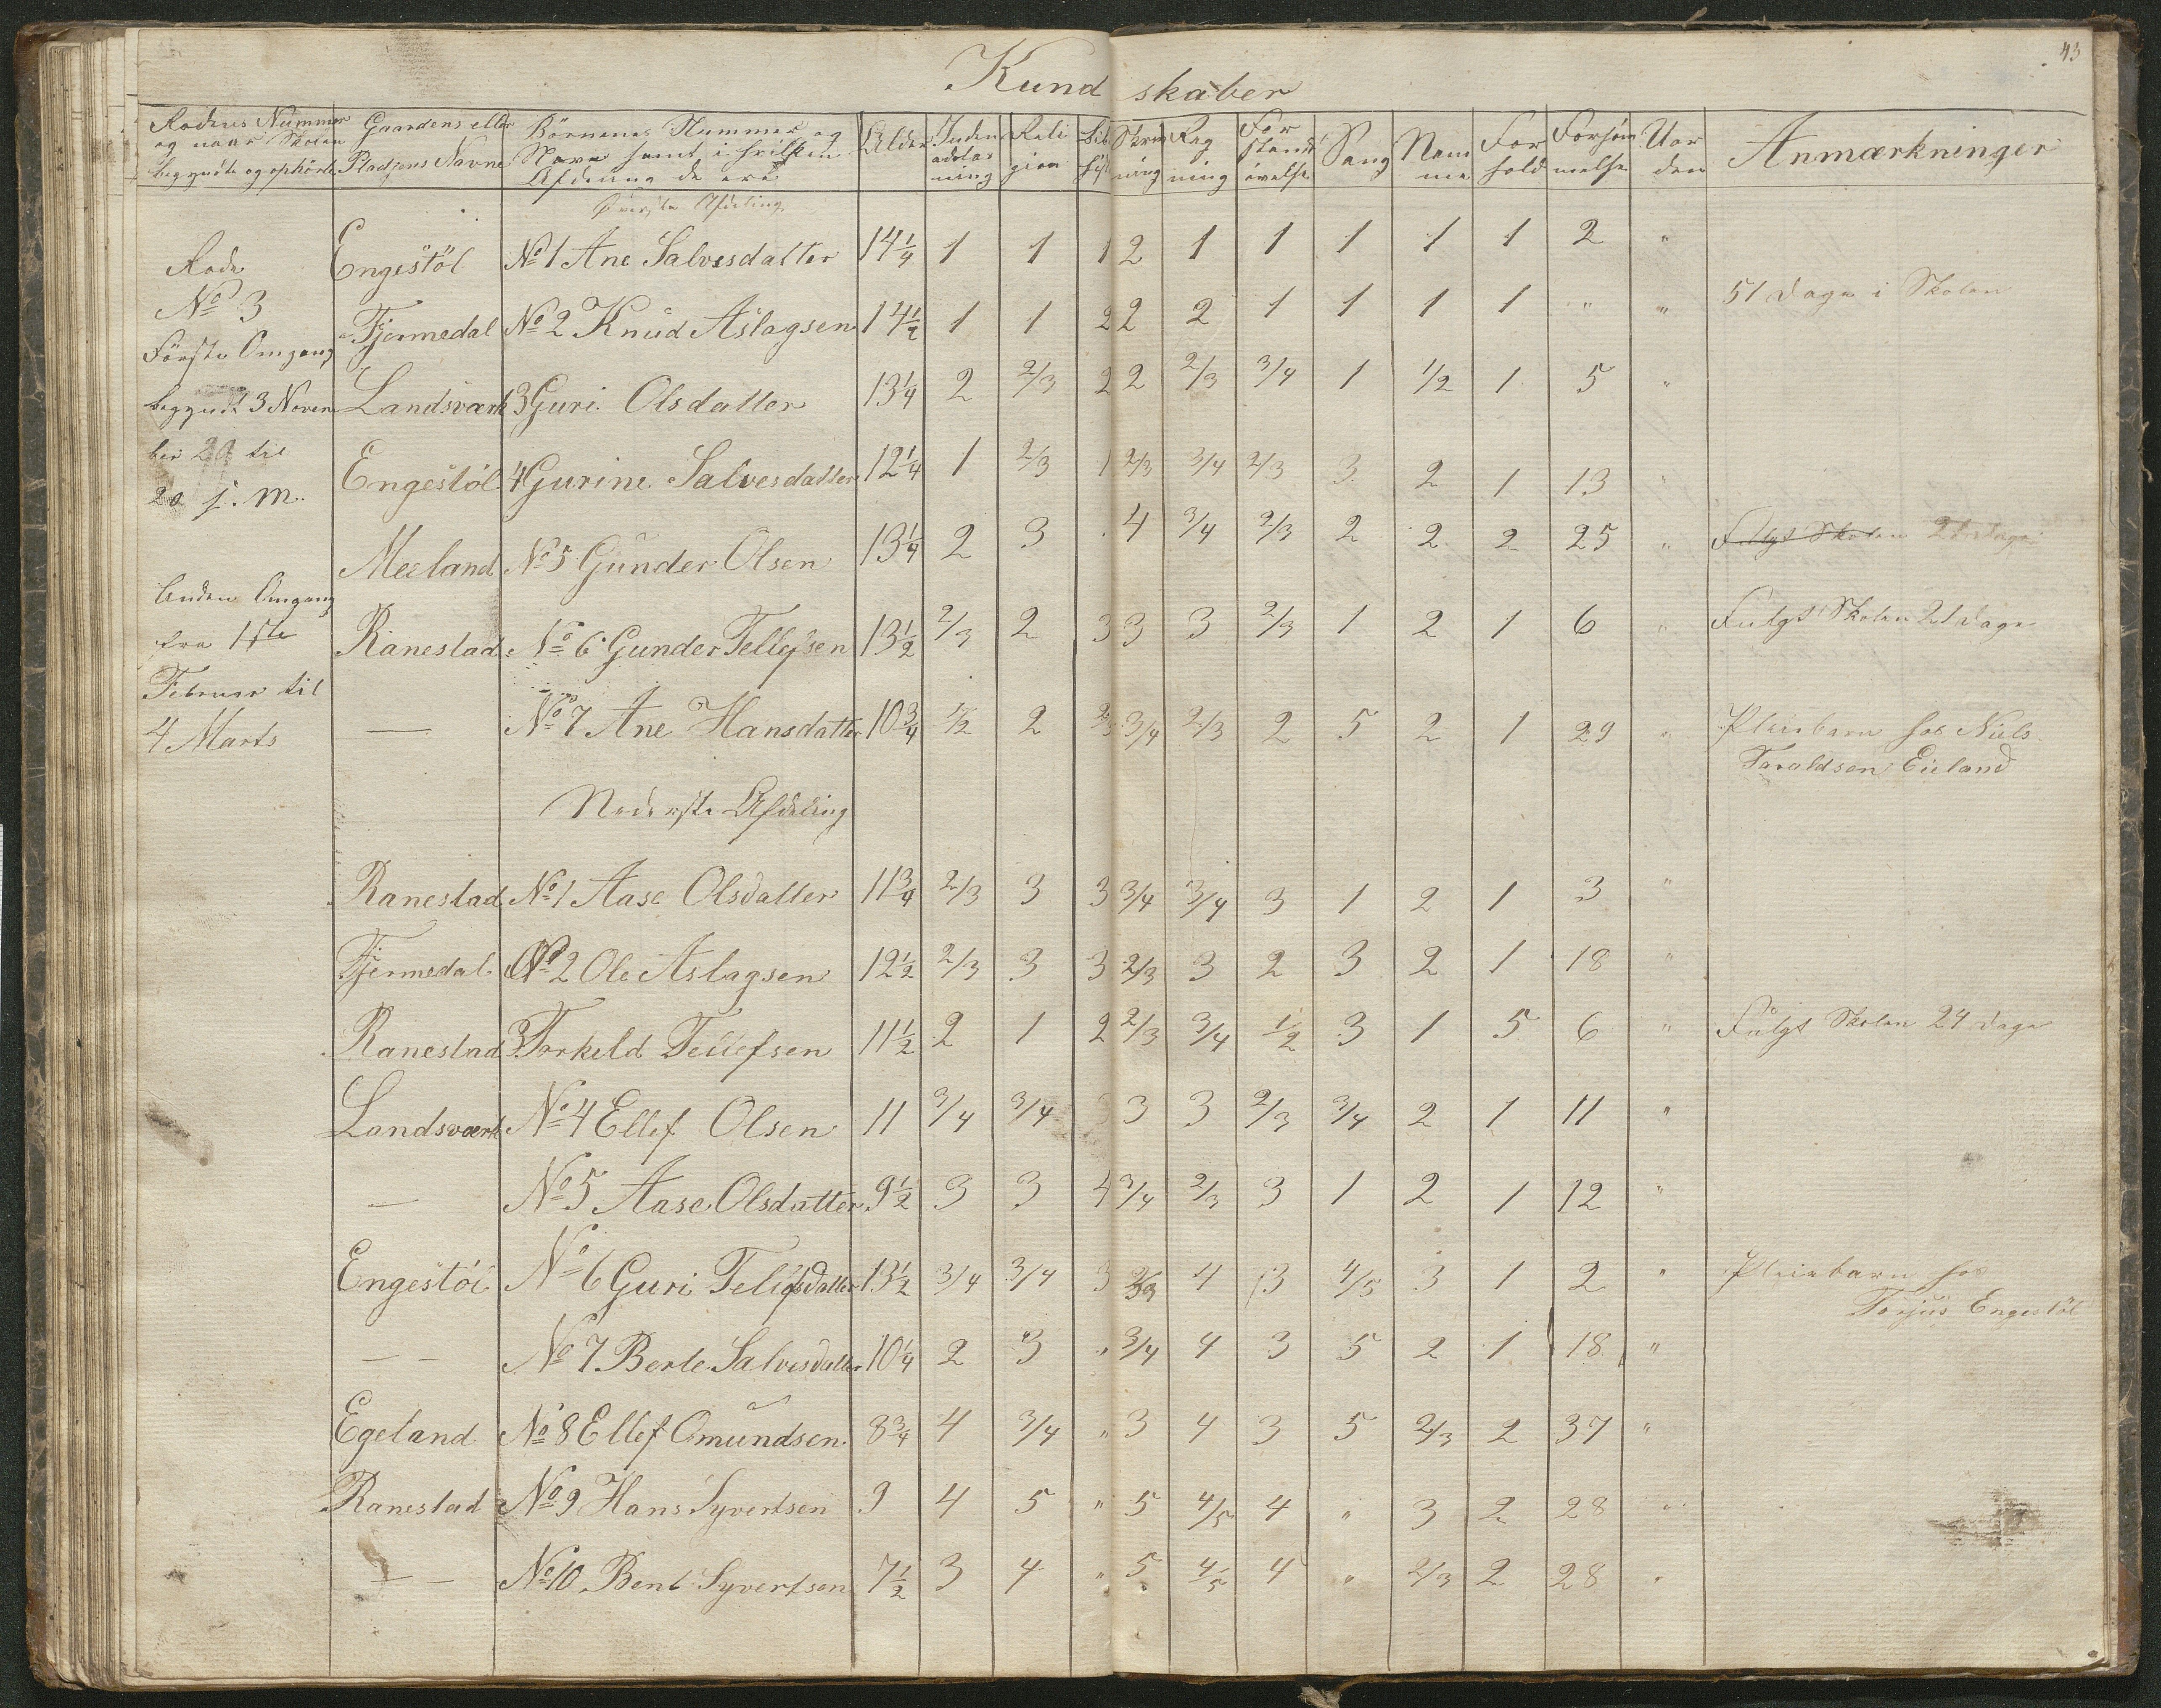 43
Kundskaber
Rodens Nummer og naar Skolen begyndte og ophörte | Gaardens eller Pladsens Navne | Börnenes Nummer og Navn samt i hvilken Afdeling de ere | Alder | Inden adslæsning | Religion | Bib. hist. | Skrivning | Regning | Forstandsövelse | Sang | Nemme | Forhold | Forsömmelse | Uorden | Anmærkninger
Överste Afdeling
Engestöl | No 1 Ane Salvesdatter | 14 1/4 | 1 | 1 | 1 | 2 | 1 | 1 | 1 | 1 | 1 | 2 | "
Fjermedal | No 2 Knud Aslagsen | 14 1/2 | 1 | 1 | 2 | 2 | 2 | 1 | 1 | 1 | 1 | " | " | 51 Dage i Skolen
Landsværk | 3 Guri Olsdatter | 13 1/4 | 2 | 2/3 | 2 | 2 | 2/3 | 3/4 | 1 | 1/2 | 1 | 5 | "
Engestöl | 4 Gurine Salvesdatter | 12 1/4 | 1 | 2/3 | 1 | 2/3 | 3/4 | 2/3 | 3 | 2 | 1 | 13 | "
Meeland | No 5 Gunder Olsen | 13 1/4 | 2 | 3 | . | 4 | 3/4 | 2/3 | 2 | 2 | 2 | 25 | " | Fulgt Skolen 21 Dage
Ranestad | No 6 Gunder Tellefsen | 13 1/2 | 2/3 | 2 | 3 | 3 | 3 | 2/3 | 1 | 2 | 1 | 6 | " | Fulgt Skolen 21 Dage
— | No 7 Ane Hansdatter | 10 3/4 | 1/2 | 2 | 2/3 | 3/4 | 2/3 | 2 | 5 | 2 | 1 | 29 | " | Pleiebarn hos Niels
Taraldsen Eieland
Rode
No 3
Förste Omgang
begyndt 3 Novem
ber 20 til
20 s. M.
Anden Omgang
fra 1ste
Februar til
4 Marts
Nederste Afdeling
Ranestad | No 1 Aase Olsdatter | 11 3/4 | 2/3 | 3 | 3 | 3/4 | 3/4 | 3 | 1 | 2 | 1 | 3 | "
Fjermedal | No 2 Ole Aslagsen | 12 1/2 | 2/3 | 3 | 3 | 2/3 | 3 | 2 | 3 | 2 | 1 | 18 | "
Ranestad | 3 Torkeld Tellefsen | 11 1/2 | 2 | 1 | 2 | 2/3 | 3/4 | 1/2 | 3 | 1 | 5 | 6 | " | Fulgt Skolen 24 Dage
Landsværk | No 4 Ellef Olsen | 11 | 3/4 | 3/4 | 3 | 3 | 3 | 2/3 | 3/4 | 2 | 1 | 11 | "
— | No 5 Aase Olsdatter | 9 1/2 | 3 | 3 | 4 | 3/4 | 2/3 | 3 | 1 | 2 | 1 | 12 | "
Engestöl | No 6 Guri Tellefsdatter | 13 1/2 | 3/4 | 3/4 | 3 | 2/3 | 4 | 3 | 4/5 | 3 | 1 | 2 | " | Pleiebarn hos
Torjus Engestöl
— — | No 7 Berte Salvesdatter | 10 1/4 | 2 | 3 | " | 3/4 | 4 | 3 | 5 | 2 | 1 | 18 | "
Egeland | No 8 Ellef Omundsen | 8 3/4 | 4 | 3/4 | " | 3 | 4 | 3 | 5 | 2/3 | 2 | 37 | "
Ranestad | No 9 Hans Syvertsen | 9 | 4 | 5 | " | 5 | 4/5 | 4 | " | 3 | 2 | 28 | "
— — | No 10 Bent Syvertsen | 7 1/2 | 3 | 4 | " | 5 | 4/5 | 4 | " | 2/3 | 2 | 28 | "